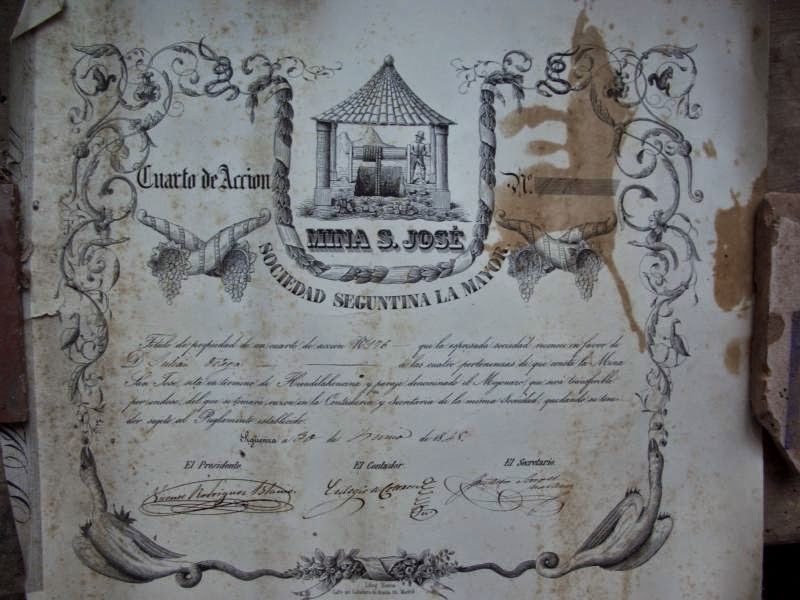 Cuarto de Accion
Nº
MINA S. JOSÉ
SOCIEDAD SEGUNTINA LA MAYOR.
Titulo de propiedad de un cuarto de accion Nº 126 que la espresada sociedad reconoce en favor de
D. Julian de las cuatro pertenencias de que consta la Mina
San Jose, sita en termino de Hiendelaencina y parage denominado el Mojonazo que sera trasferible
por endoso, del que se tomará razon en la Contaduria y Secretaria de la misma Sociedad, quedando su tene-
dor sugeto al Reglamento establecido.
Sigüenza a 30 de Junio de 1848.
El Presidente
El Contador
El Secretario
Vicente Rodriguez Blanco